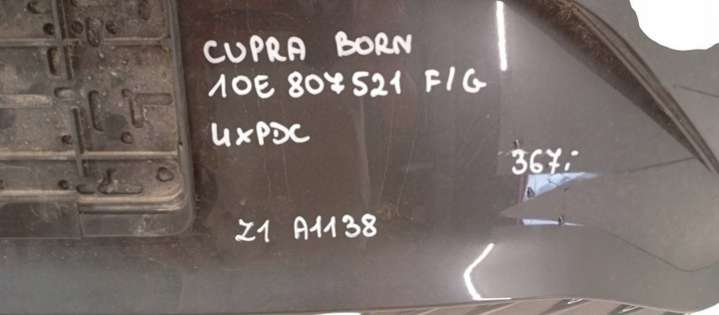 CUPRA BORN
10E 807521 F/G
4xPDC
367,-
Z1 A1138